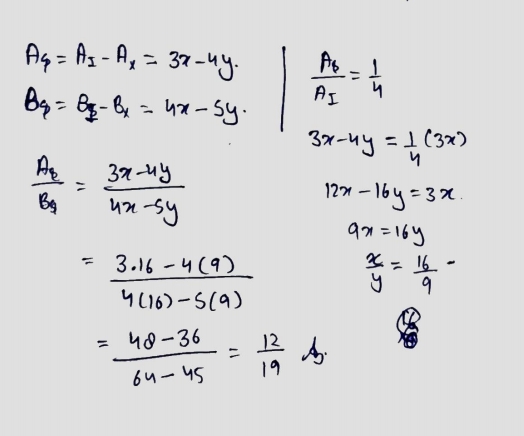 A_S = A_I - A_x = 3x - 4y.
B_S = B_I - B_x = 4x - 5y.
A_S/B_S = (3x - 4y)/(4x - 5y)
= (3.16 - 4(9))/(4(16) - 5(9))
= (48 - 36)/(64 - 45) = 12/19
A_S/A_I = 1/4
3x - 4y = 1/4 (3x)
12x - 16y = 3x.
9x = 16y
x/y = 16/9